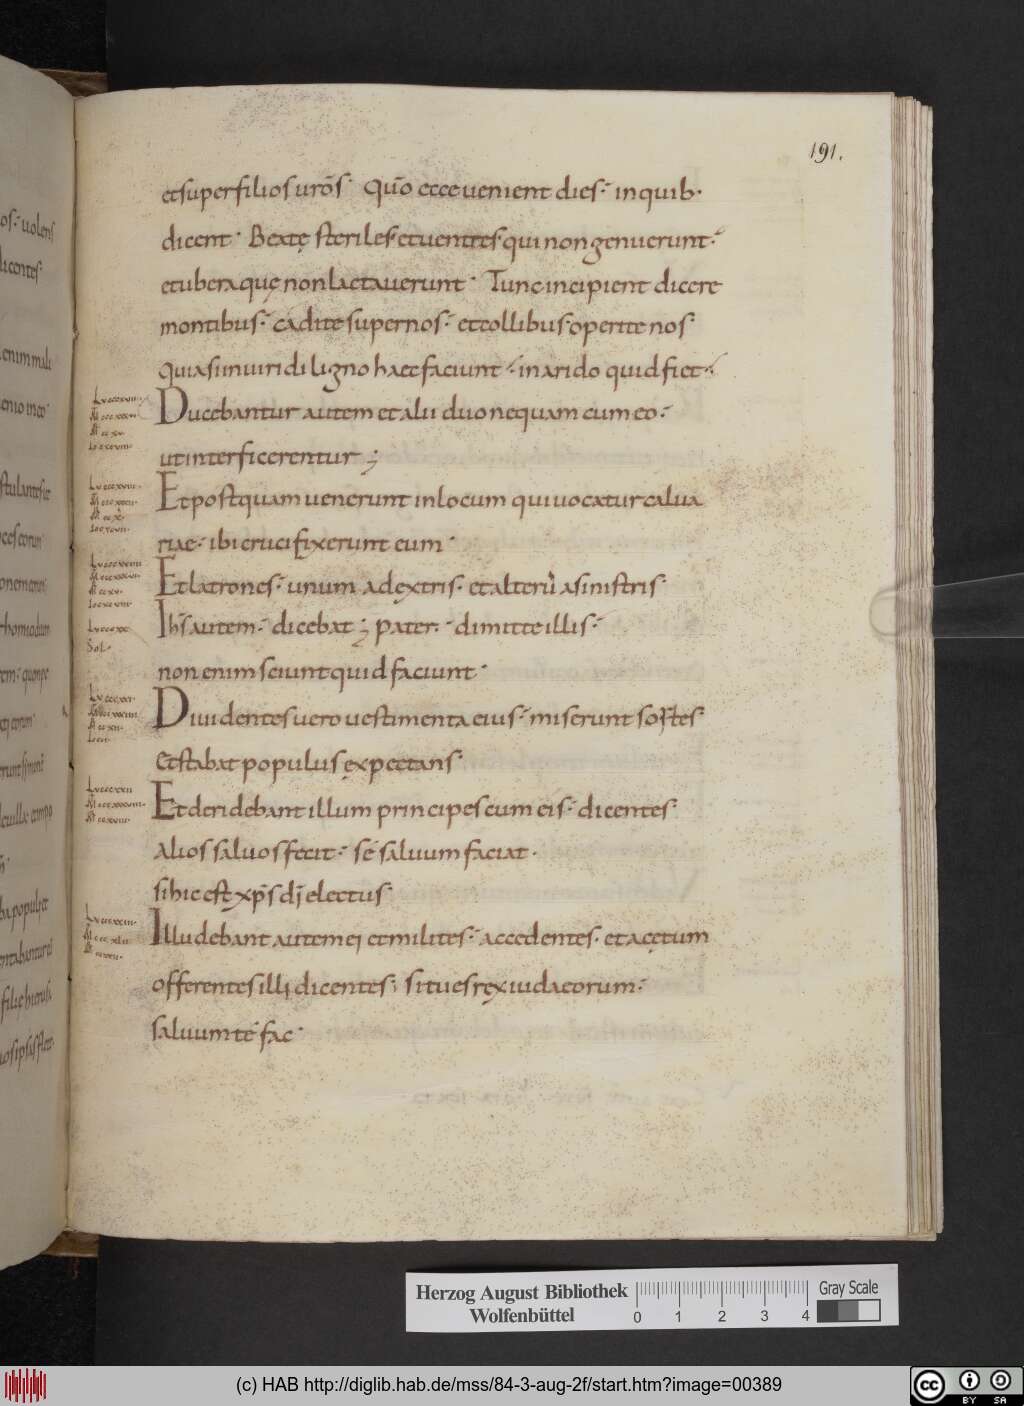 191.
et super filios urōs· Qūo ecce uenient dies· in quib·
dicent· Beatę steriles et uentres qui non genuerunt·
et ubera quę non lactauerunt· Tunc incipient dicere
montibus· cadite super nos· et collibus operite nos·
quia si in uiridi ligno haec faciunt· in arido quid fiet·
Ducebantur autem et alii duo nequam cum eo·
ut interficerentur;
Et postquam uenerunt in locum qui uocatur calua
riae· ibi crucifixerunt eum·
Et latrones· unum a dextris· et alterū a sinistris·
Ihs̄ autem· dicebat; pater· dimitte illis·
non enim sciunt quid faciunt·
Diuidentes uero uestimenta eius· miserunt sortes·
Et stabat populus expectans·
Et deridebant illum principes cum eis· dicentes·
Alios saluos fecit· se saluum faciat·
si hic est xp̄s dī electus·
Illudebant autem ei et milites· accedentes· et acetum
offerentes illi dicentes; si tu es rex iudaeorum·
saluum te fac·
Herzog August Bibliothek
Wolfenbüttel
0 1 2 3 4
Gray Scale
(c) HAB http://diglib.hab.de/mss/84-3-aug-2f/start.htm?image=00389
cc BY SA